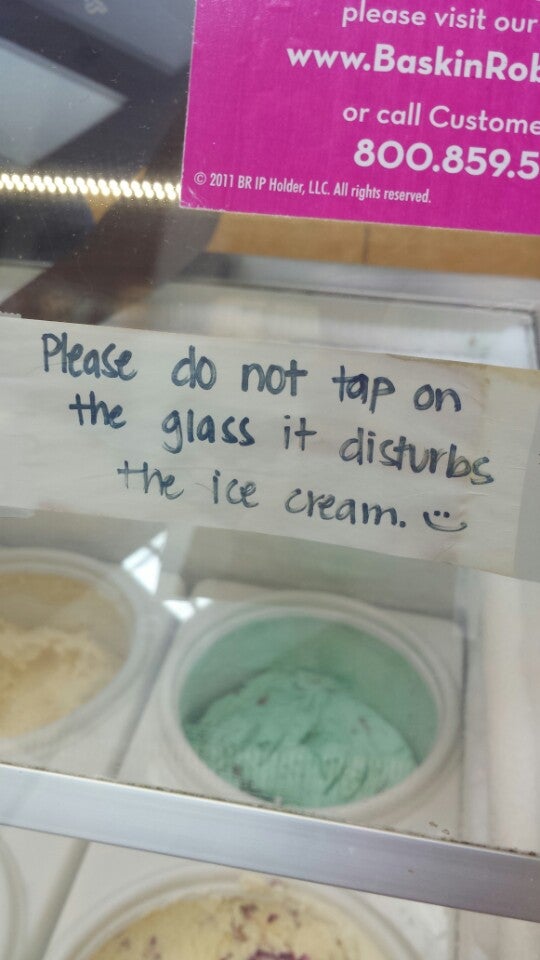 please visit our
www.BaskinRob
or call Custome
800.859.5
© 2011 BR IP Holder, LLC. All rights reserved.
Please do not tap on
the glass it disturbs
the ice cream. :)